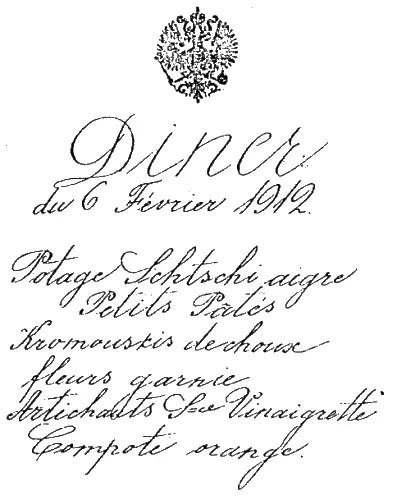 Diner
du 6 Février 1912.
Potage Schtschi aigre
Petits Pâtés
Kromouskis de choux
fleurs garnie
Artichauts S-ce Vinaigrette
Compote orange.